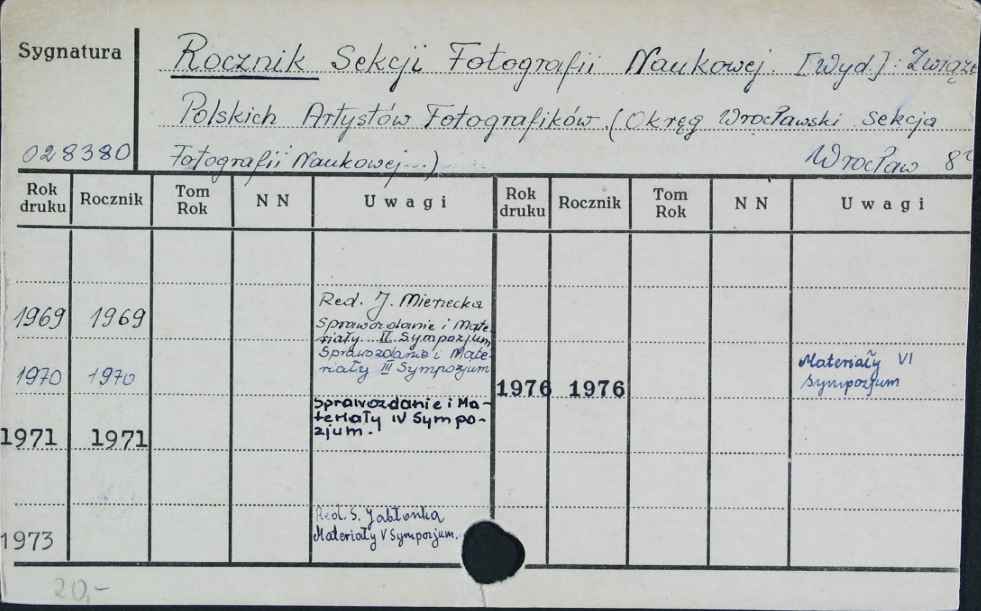 Sygnatura
Rocznik Sekcji Fotografii Naukowej. [Wyd]: Związe
Polskich Artystów Fotografików. (Okręg Wrocławski sekcja
028380 Fotografii Naukowej...) Wrocław 8°
Rok druku Rocznik Tom Rok NN Uwagi Rok druku Rocznik Tom Rok NN Uwagi
1969 1969 Red. J. Mierzecka
Sprawozdanie i Mate-
riały II Sympozjum
1970 1970 Sprawozdanie i Mate-
riały III Sympozjum
1976 1976 Materiały VI
Sympozjum
1971 1971 Sprawozdanie i Ma-
teriały IV Sympo-
zjum.
1973 Red. S. Jabłonka
Materiały V Sympozjum.
20,-